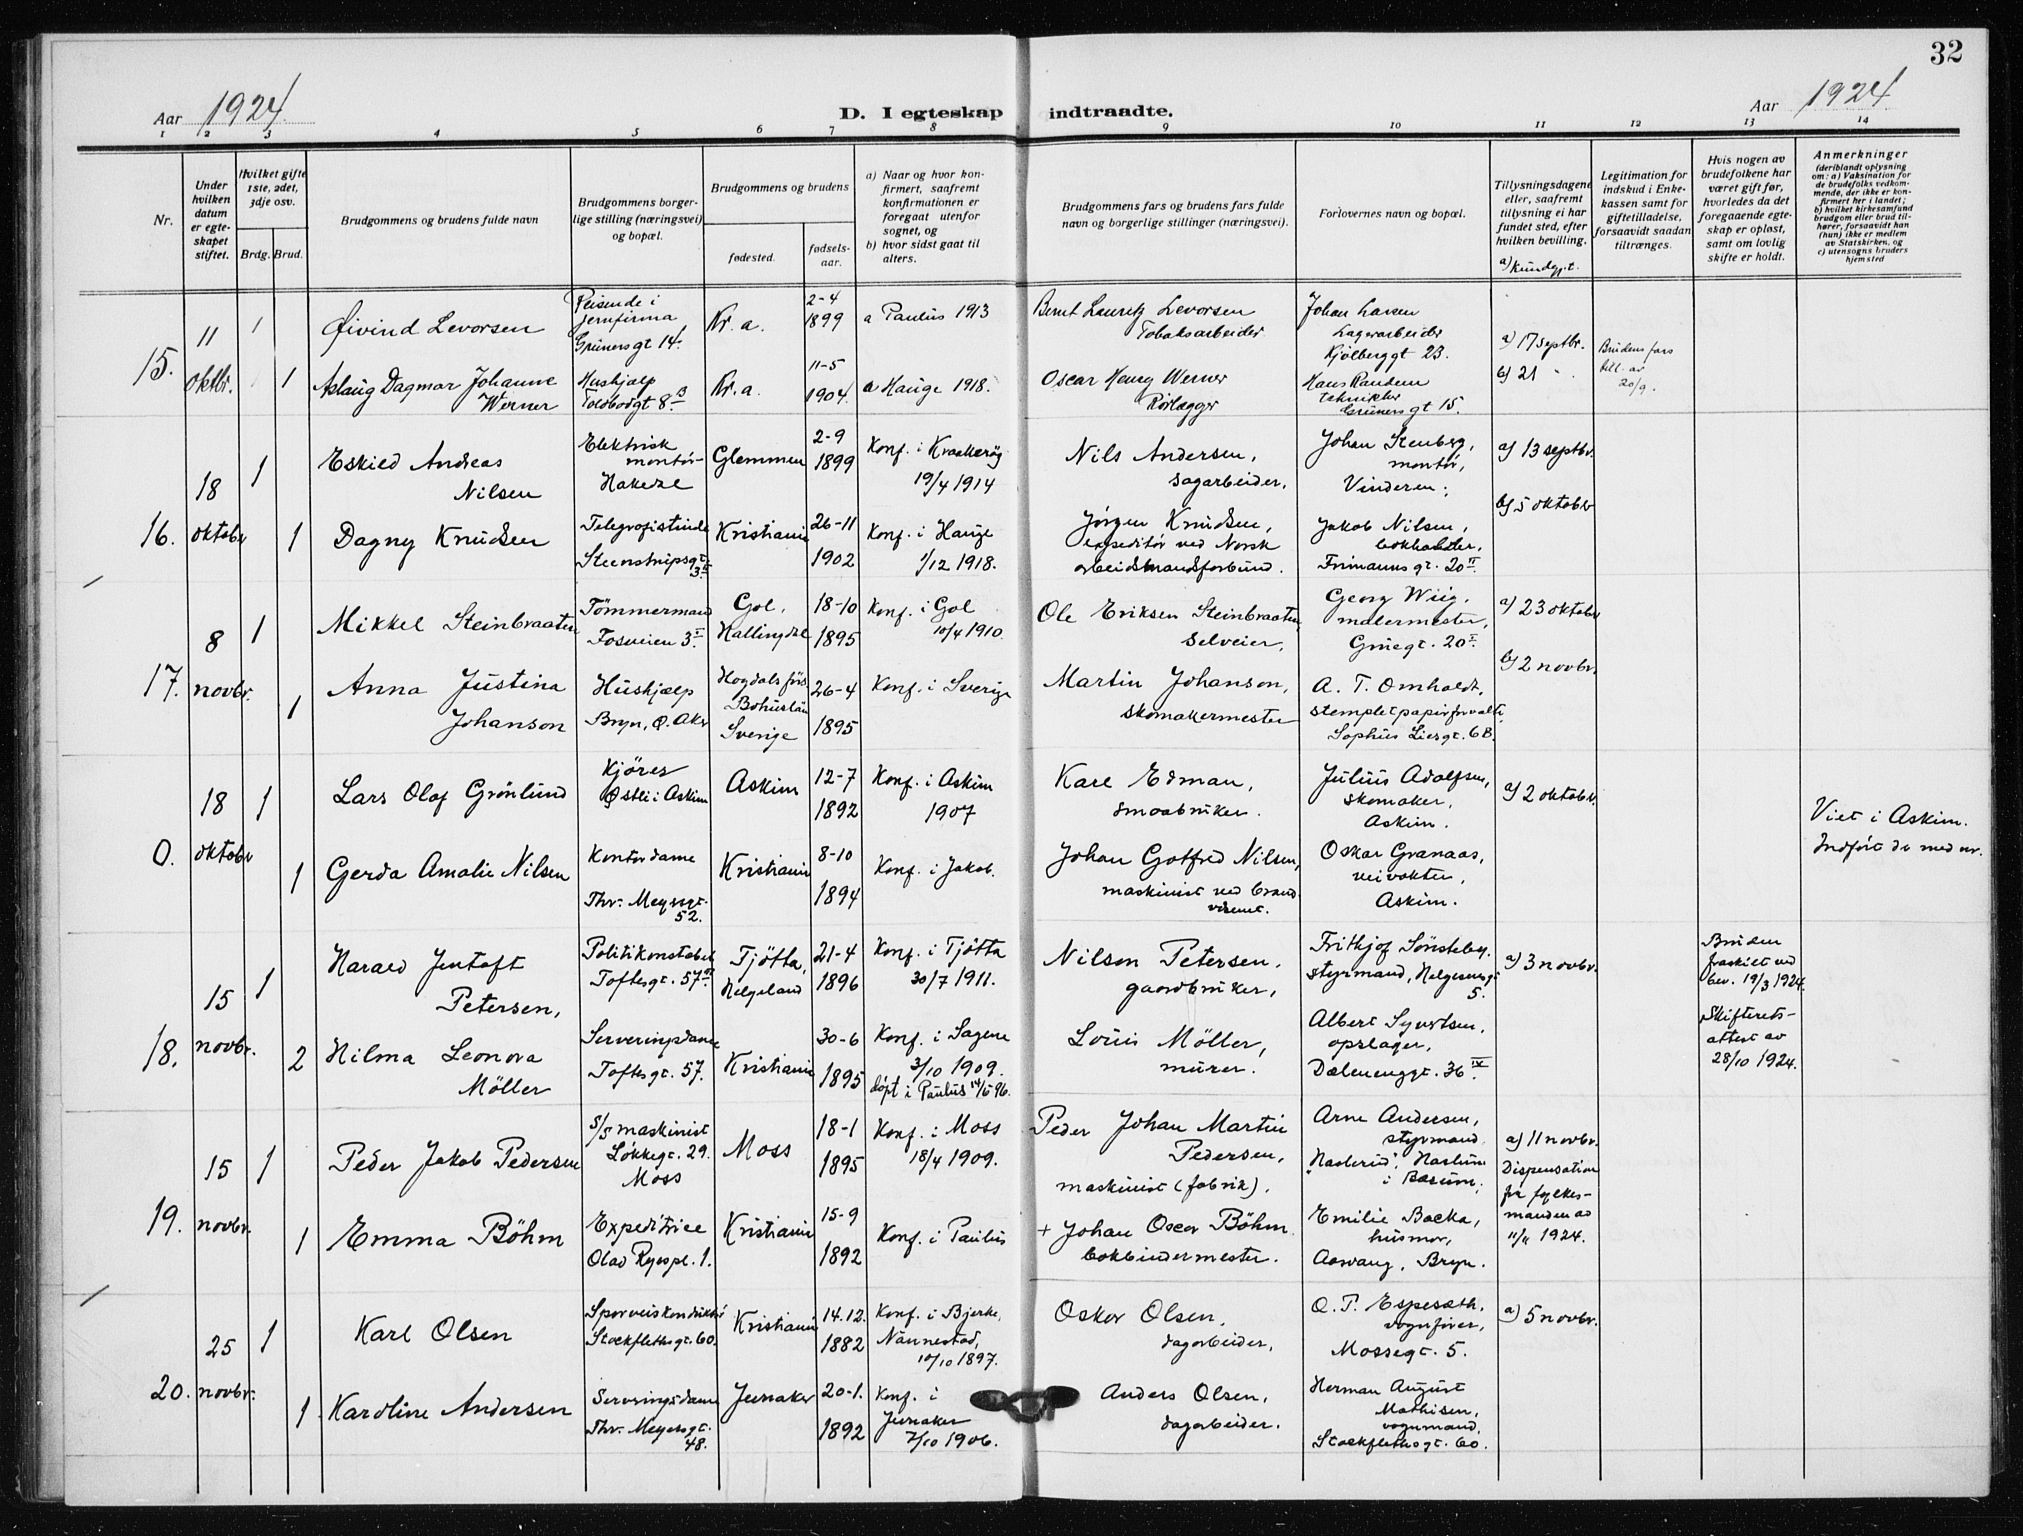 32
Aar 1924.
D. I egteskap indtraadte.
Aar 1924
1 2 3 4 5 6 7 8 9 10 11 12 13 14
Nr.
Under hvilken datum er egteskapet stiftet.
Hvilket gifte 1ste, 2det, 3dje osv.
Brdg. Brud.
Brudgommens og brudens fulde navn
Brudgommens borgerlige stilling (næringsvei) og bopæl.
Brudgommens og brudens
fødested.
fødselsaar.
a) Naar og hvor konfirmert, saafremt konfirmationen er foregaat utenfor sognet, og
b) hvor sidst gaat til alters.
Brudgommens fars og brudens fars fulde navn og borgerlige stillinger (næringsvei).
Forlovernes navn og bopæl.
Tillysningsdagene eller, saafremt tillysning ei har fundet sted, efter hvilken bevilling.
a) Kundgjt.
Legitimation for indskud i Enkekassen samt for giftetilladelse, forsaavidt saadan tiltrænges.
Hvis nogen av brudefolkene har været gift før, hvorledes da det foregaaende egteskap er opløst, samt om lovlig skifte er holdt.
Anmerkninger
(deriblandt oplysning om: a) Vaksination for de brudefolks vedkommende, der ikke er konfirmert her i landet; b) hvilket kirkesamfund brudgom eller brud tilhører, forsaavidt han (hun) ikke er medlem av Statskirken, og c) utensogns bruders hjemsted
15.
11 oktbr.
1
Øivind Levorsen
Reisende i jernfirma
Grünersgt 14.
Kr. a.
2-4 1899
a Paulus 1913
Bernt Lauritz Levorsen
Tobaksarbeider
Johan Larsen
Lagerarbeider
Kjølberggt 23.
a) 17 septbr.
b) 21 "
Brudens fars till. av 20/9.
1
Aslaug Dagmar Johanne Werner
Hushjælp
Toldbodgt 8 B
Kr. a.
11-5 1904.
a Hauge 1918.
Oscar Henry Werner
Rørlægger
Hans Randem
tekniker
Grünersgt 15.
16.
18 oktober
1
Eskild Andreas Nilsen
Elektrisk montør
Glemmen
2-9 1899
Konf. i Kraakerøy 19/4 1914
Nils Andersen,
sagarbeider.
Johan Stenberg,
montør,
Vinderen;
a) 13 septbr.
b) 5 oktober
1
Dagny Knudsen
Telegrafistinde
Steenstrupsgt. 3 II
Kristiania
26-11 1902
Konf. i Hauge 1/12 1918.
Jørgen Knudsen,
expeditør ved Norsk
arbeidsmandsforbund.
Jakob Nilsen,
bokholder,
Frimannsgt. 20 II.
17.
8 novbr.
1
Mikkel Steinbraaten
Tømmermand
Fosveien 3 I
Gol, Hallingdal
18-10 1895
Konf. i Gol 10/4 1910.
Ole Eriksen Steinbraaten,
selveier.
Georg Wiig,
malermester,
Gøtegt. 20 I.
a) 23 oktober
b) 2 novbr.
1
Anna Justina Johanson
Hushjælp
Bryn, Ø. Aker
Hogdals förs. Bohuslän Sverige
26-4 1895
Konf. i Sverige
Martin Johanson,
skomakermester
A. T. Omholdt,
stempletpapirforvalt.
Sophus Liesgt. 6B.
0.
18 oktober
1
Lars Olaf Grønlund
Kjører
Østli i Askim
Askim
12-7 1892
Konf. i Askim 1907
Karl Edman,
smaabruker.
Julius Adolfsen,
skomaker,
Askim.
a) 2 oktober.
Viet i Askim.
Indført der med nr.
1
Gerda Amalie Nilsen
Kontordame
Thv. Meyersgt. 52.
Kristiania
8-10 1894
Konf. i Jakob.
Johan Gotfred Nilsen,
maskinist ved brandvæsenet.
Oskar Granaas,
veivokter,
Askim.
18.
15 novbr.
1
Harald Jentoft Petersen,
Politikonstabel
Toftesgt. 57 II.
Tjøtta, Helgeland
21-4 1896
Konf. i Tjøtta 30/7 1911.
Nilson Petersen,
gaardbruker,
Frithjof Sønsteby.
styrmand, Helgesensgt 5.
a) 3 novbr.
Bruden fraskilt ved bev. 19/3 1924.
Skifterets-attest av 28/10 1924.
2
Hilma Leonora Möller
Serveringsdame
Toftesgt. 57.
Kristiania
30-6 1895
Konf. i Sagene 3/10 1909.
døpt i Paulus 14/5 96.
Louis Möller,
murer.
Albert Syvertsen,
opslager,
Dælenenggt. 36 IV.
19.
15 novbr.
1
Peder Jakob Pedersen
S/S maskinist
Løkkegt. 29.
Moss
Moss
18-1 1895
Konf. i Moss 18/4 1909.
Peder Johan Martin Pedersen,
maskinist (fabrik).
Arne Andersen,
styrmand.
"Haslerud", Haslum i Bærum;
a) 11 novbr.
Dispensation fra fylkesmanden av 11/11 1924.
1
Emma Böhm
Expeditrice
Olav Ryespl. 1.
Kristiania
15-9 1892
Konf. i Paulus
+ Johan Oscar Böhm
bokbindermester.
Emilie Backa,
husmor,
Aasvang, Bryn.
20.
25 novbr.
1
Karl Olsen
Sporveiskonduktør
Stockflethsgt. 60.
Kristiania
14.12. 1882
Konf. i Bjerke, Nannestad, 10/10 1897.
Oskar Olsen,
dagarbeider.
O. P. Espeseth,
vognfører,
Mossegt. 5.
a) 5 novbr.
1
Karoline Andersen
Serveringsdame
Thv. Meyersgt. 48.
Jevnaker
20-1. 1892
Konf. i Jevnaker 7/10 1906.
Anders Olsen,
dagarbeider.
Herman August Mathisen,
vognmand,
Stockflethsgt. 60.